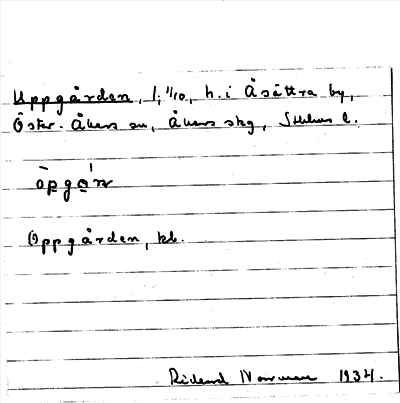 Uppgården, 1, 1/10, h. i Åsättra by,
Öster-Åkers sn, Åkers skg, Sthlms l.
Oppgården, kb.
Rickard Norrman 1934.